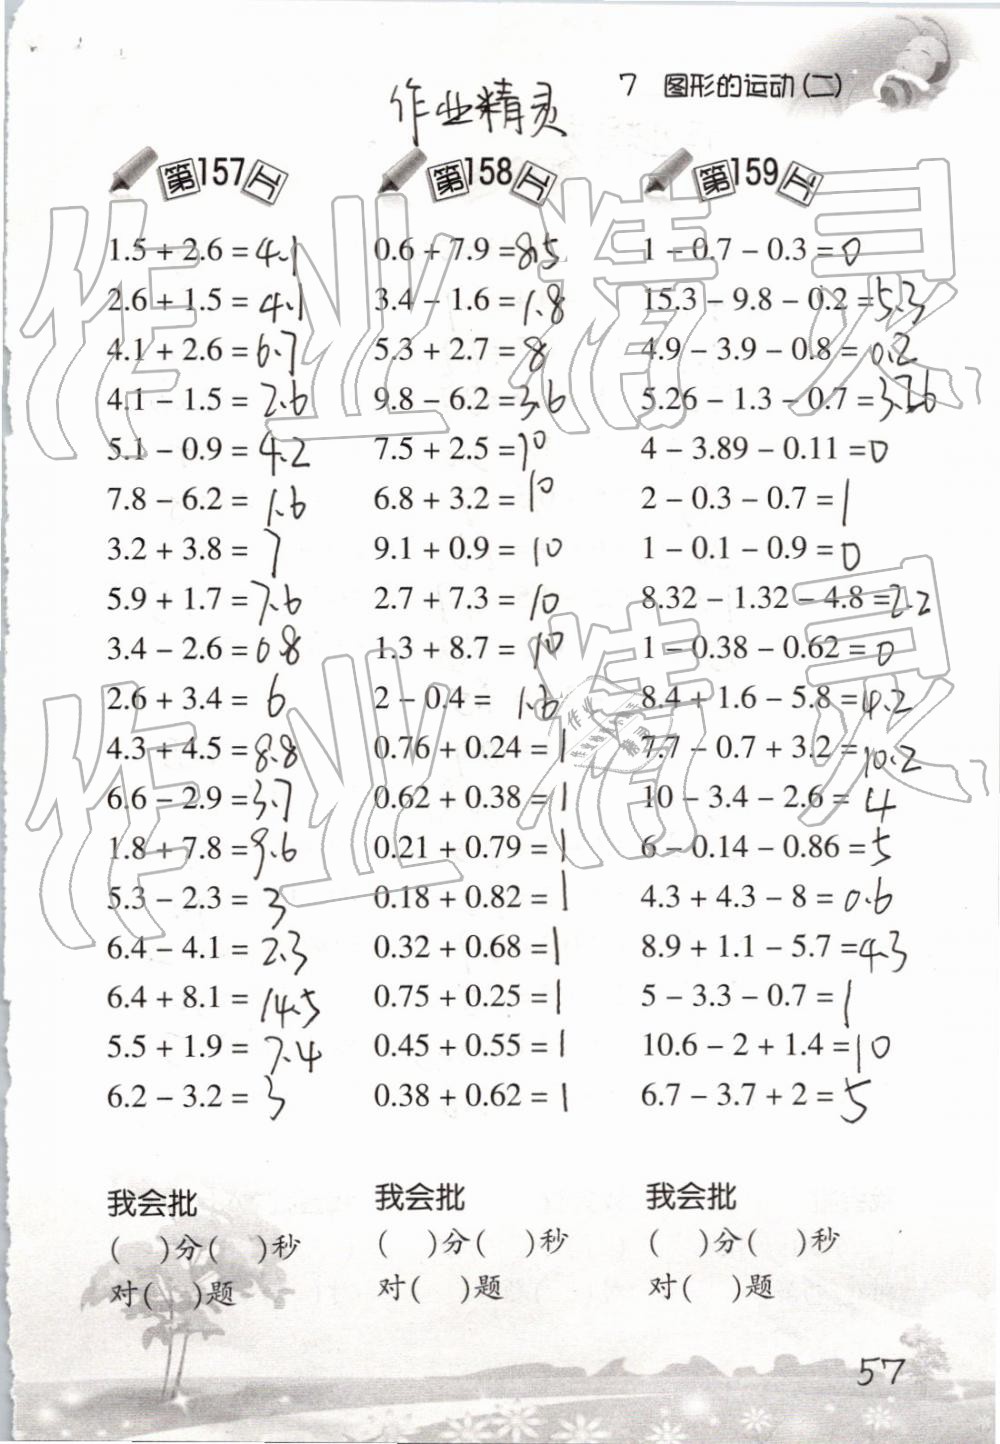 7 图形的运动(二)
作业精灵
第157天
1.5 + 2.6 = 4.1
2.6 + 1.5 = 4.1
4.1 + 2.6 = 6.7
4.1 − 1.5 = 2.6
5.1 − 0.9 = 4.2
7.8 − 6.2 = 1.6
3.2 + 3.8 = 7
5.9 + 1.7 = 7.6
3.4 − 2.6 = 0.8
2.6 + 3.4 = 6
4.3 + 4.5 = 8.8
6.6 − 2.9 = 3.7
1.8 + 7.8 = 9.6
5.3 − 2.3 = 3
6.4 − 4.1 = 2.3
6.4 + 8.1 = 14.5
5.5 + 1.9 = 7.4
6.2 − 3.2 = 3
我会批
( )分( )秒
对( )题
第158天
0.6 + 7.9 = 8.5
3.4 − 1.6 = 1.8
5.3 + 2.7 = 8
9.8 − 6.2 = 3.6
7.5 + 2.5 = 10
6.8 + 3.2 = 10
9.1 + 0.9 = 10
2.7 + 7.3 = 10
1.3 + 8.7 = 10
2 − 0.4 = 1.6
0.76 + 0.24 = 1
0.62 + 0.38 = 1
0.21 + 0.79 = 1
0.18 + 0.82 = 1
0.32 + 0.68 = 1
0.75 + 0.25 = 1
0.45 + 0.55 = 1
0.38 + 0.62 = 1
我会批
( )分( )秒
对( )题
第159天
1 − 0.7 − 0.3 = 0
15.3 − 9.8 − 0.2 = 5.3
4.9 − 3.9 − 0.8 = 0.2
5.26 − 1.3 − 0.7 = 3.26
4 − 3.89 − 0.11 = 0
2 − 0.3 − 0.7 = 1
1 − 0.1 − 0.9 = 0
8.32 − 1.32 − 4.8 = 2.2
1 − 0.38 − 0.62 = 0
8.4 + 1.6 − 5.8 = 4.2
7.7 − 0.7 + 3.2 = 10.2
10 − 3.4 − 2.6 = 4
6 − 0.14 − 0.86 = 5
4.3 + 4.3 − 8 = 0.6
8.9 + 1.1 − 5.7 = 4.3
5 − 3.3 − 0.7 = 1
10.6 − 2 + 1.4 = 10
6.7 − 3.7 + 2 = 5
我会批
( )分( )秒
对( )题
57
作业精灵
作业精灵
作业精灵